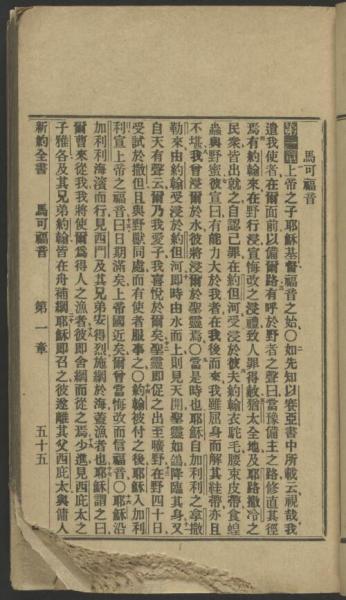 馬可福音
第一章上帝之子耶穌基督福音之始○如先知以賽亞書中所載云視哉我
遣我使者在爾面前以備爾路有呼於野者之聲曰當豫備主之路修直其徑
焉有約翰來在野行浸宣悔改之浸禮致人罪得赦猶太全地及耶路撒冷之
民衆皆出就之自認己罪在約但河受浸於彼夫約翰衣駝毛腰束皮帶食蝗
蟲與野蜜彼宣曰有能力大於我者在我後而來我雖屈身而解其鞋帶亦且
不堪我曾浸爾於水彼將浸爾於聖靈焉○當是時也耶穌自加利利之拿撒
勒來由約翰受浸於約但河即時由水而上則見天開聖靈如鴿降臨其身又
自天有聲云爾乃我愛子我喜悅於爾矣聖靈即促之出至曠野在野四十日
受試於撒但且與野獸同處而有使者服事之○約翰被付之後耶穌入加利
利宣上帝之福音曰日期滿矣上帝國近矣爾曹當悔改而信福音○耶穌沿
加利利海濱而行見西門及其兄弟安得烈施網於海蓋漁者也耶穌謂之曰
爾曹來從我我將使爾爲得人之漁者彼即舍網而從之焉少進見西庇太之
子雅各及其兄弟約翰皆在舟補網耶穌即召之彼遂離其父西庇太與傭人
新約全書 馬可福音 第一章 五十五